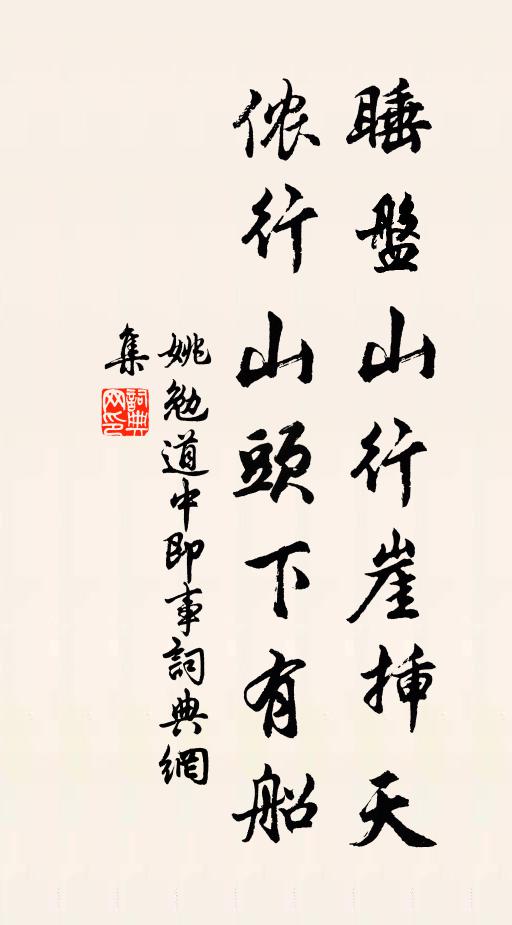 睡盤山行崖挿天
侬行山頭下有船
姚勉道中即事詞典網
集
詞典网印